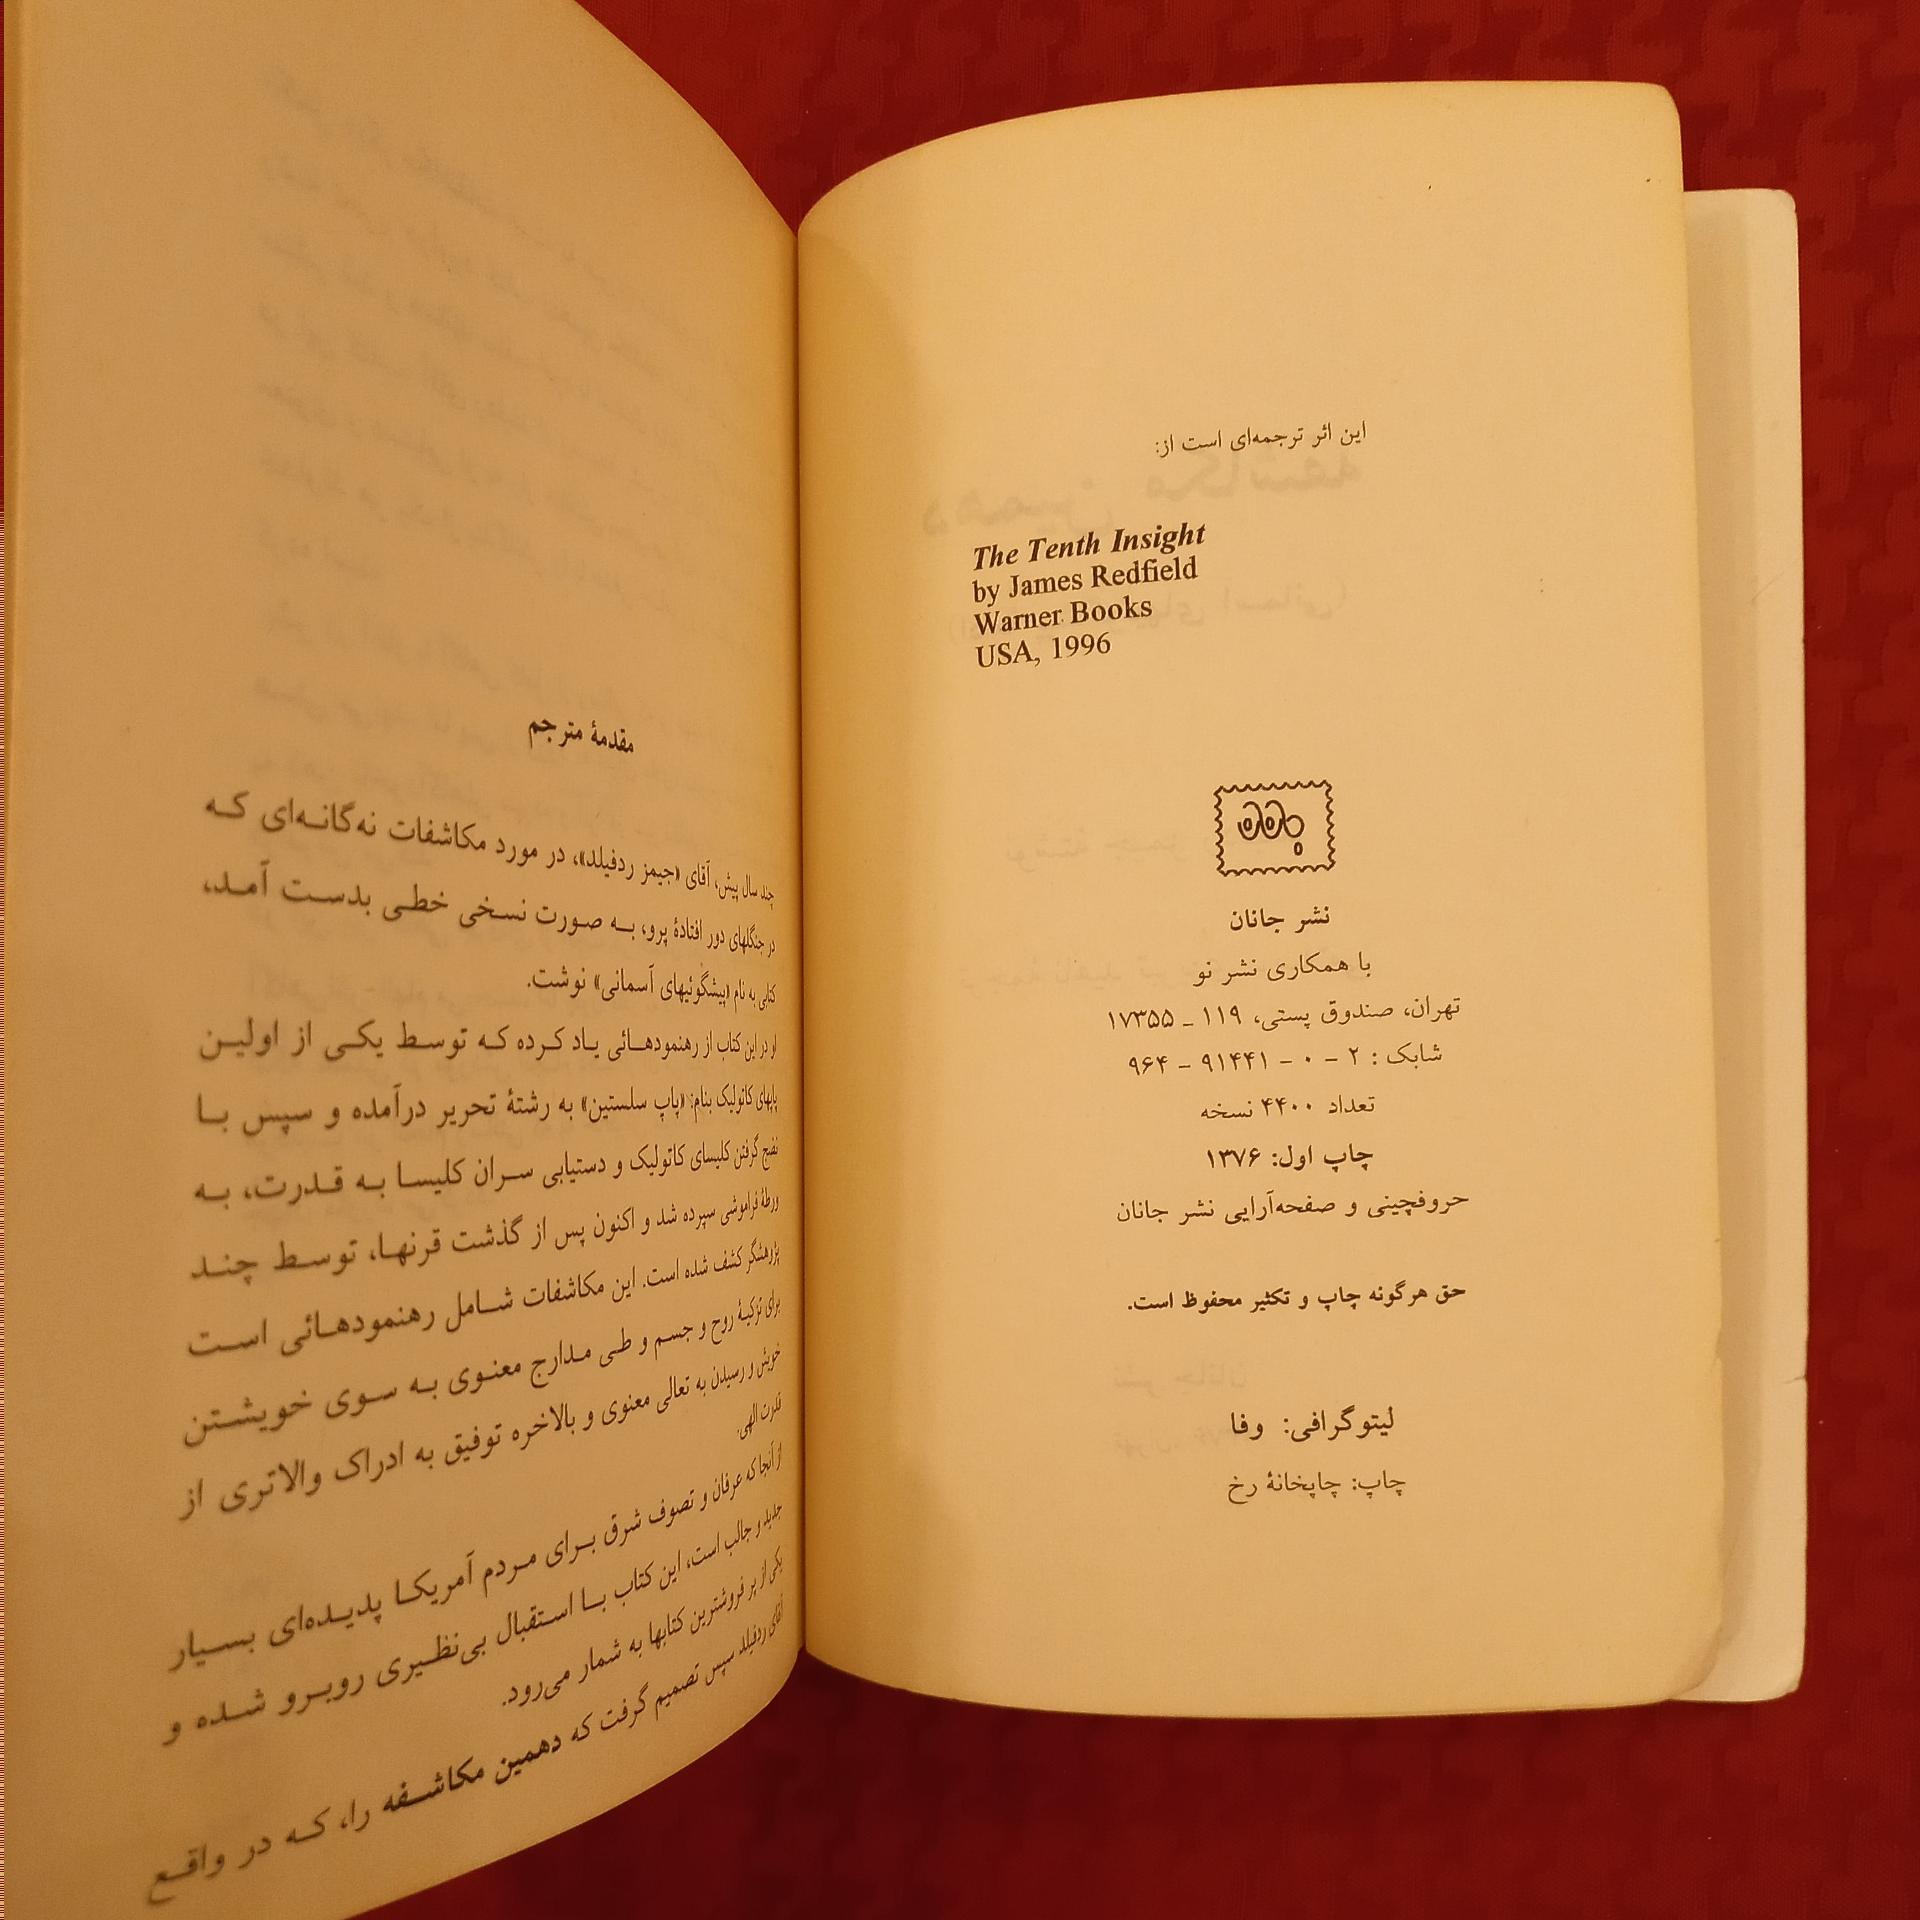 این اثر ترجمه‌ای است از:
The Tenth Insight
by James Redfield
Warner Books
USA, 1996
نشر جانان
با همکاری نشر نو
تهران، صندوق پستی، ۱۱۹ ـ ۱۷۳۵۵
شابک : ۲ - ۰ - ۹۱۴۴۱ - ۹۶۴
تعداد ۴۴۰۰ نسخه
چاپ اول: ۱۳۷۶
حروفچینی و صفحه‌آرایی نشر جانان
حق هرگونه چاپ و تکثیر محفوظ است.
لیتوگرافی: وفا
چاپ: چاپخانهٔ رخ
مقدمهٔ مترجم
چند سال پیش، آقای «جیمز ردفیلد»، در مورد مکاشفات نه‌گانه‌ای که
در جنگلهای دور افتادهٔ پرو، به صورت نسخی خطی بدست آمد،
کتابی به نام «پیشگوئیهای آسمانی» نوشت.
او در این کتاب از رهنمودهائی یاد کرده که توسط یکی از اولین
پاپهای کاتولیک بنام: «پاپ سلستین» به رشتهٔ تحریر درآمده و سپس با
نضج گرفتن کلیسای کاتولیک و دستیابی سران کلیسا به قدرت، به
ورطهٔ فراموشی سپرده شد و اکنون پس از گذشت قرنها، توسط چند
پژوهشگر کشف شده است. این مکاشفات شامل رهنمودهائی است
برای تزکیهٔ روح و جسم و طی مدارج معنوی به سوی خویشتن
خویش و رسیدن به تعالی معنوی و بالاخره توفیق به ادراک والاتری از
قدرت الهی.
از آنجا که عرفان و تصوف شرق برای مردم آمریکا پدیده‌ای بسیار
جدید و جالب است، این کتاب با استقبال بی‌نظیری روبرو شده و
یکی از پر فروشترین کتابها به شمار می‌رود.
آقای ردفیلد سپس تصمیم گرفت که دهمین مکاشفه را، که در واقع